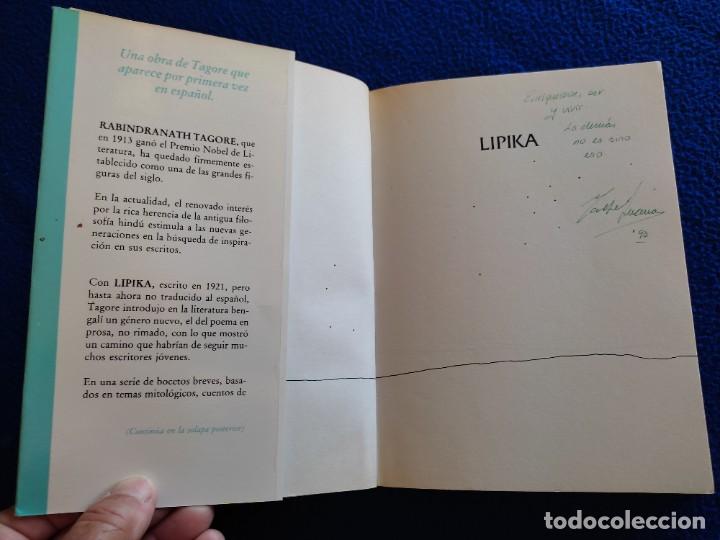 Una obra de Tagore que
aparece por primera vez
en español.
RABINDRANATH TAGORE, que
en 1913 ganó el Premio Nobel de Li-
teratura, ha quedado firmemente es-
tablecido como una de las grandes fi-
guras del siglo.
En la actualidad, el renovado interés
por la rica herencia de la antigua filo-
sofía hindú estimula a las nuevas ge-
neraciones en la búsqueda de inspira-
ción en sus escritos.
Con LIPIKA, escrito en 1921, pero
hasta ahora no traducido al español,
Tagore introdujo en la literatura ben-
galí un género nuevo, el del poema en
prosa, no rimado, con lo que mostró
un camino que habrían de seguir mu-
chos escritores jóvenes.
En una serie de bocetos breves, basa-
dos en temas mitológicos, cuentos de
(Continúa en la solapa posterior)
LIPIKA
Enriquecerse, ser
y vivir
Lo demás
no es sino
eso
todocoleccion